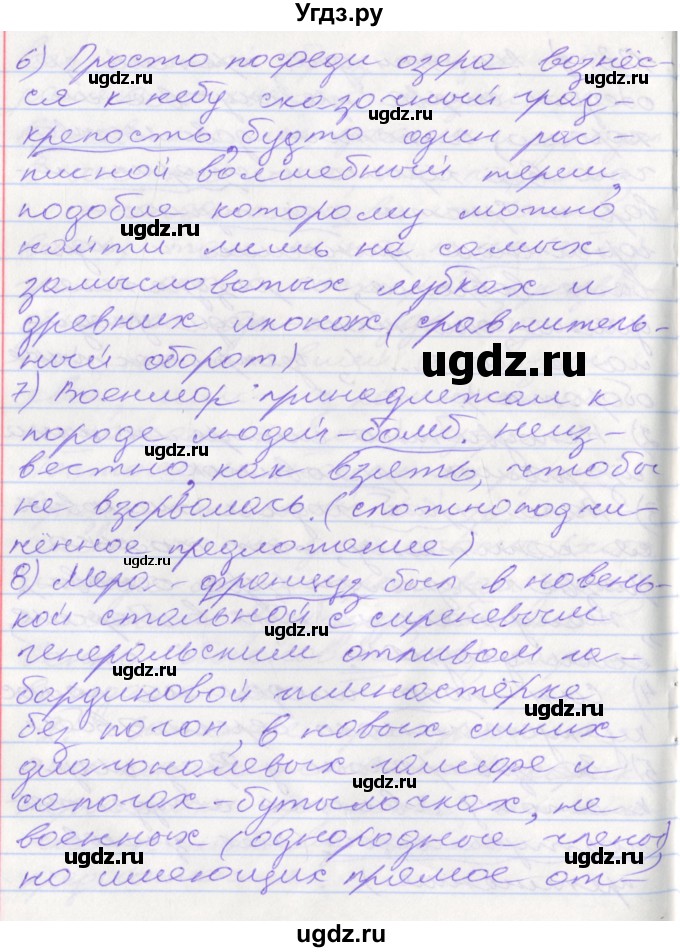 Угдз.ру
6) Просто посреди озера вознёс-
ugdz.ru
ugdz.ru
ся к небу сказочный град-
ugdz.ru
крепость, будто один рас-
писной волшебный терем,
ugdz.ru
ugdz.ru
подобие которому можно
найти лишь на самых
замысловатых лубках и
древних иконах (сравнитель-
ugdz.ru
ный оборот)
ugdz.ru
7) Военмор принадлежал к
породе людей-бомб. Неиз-
ugdz.ru
вестно, как взять, чтобы
ugdz.ru
не взорвалась. (сложноподчи-
нённое предложение)
ugdz.ru
8) Мера-француз был в новень-
кой стальной с сиреневым
ugdz.ru
генеральским отливом га-
ugdz.ru
бардиновой гимнастёрке
ugdz.ru
без погон, в новых синих
диагоналевых галифе и
ugdz.ru
сапогах-бутылочках, не
военных (однородные члены)
ugdz.ru
ugdz.ru
но имеющих прямое от-
ugdz.ru